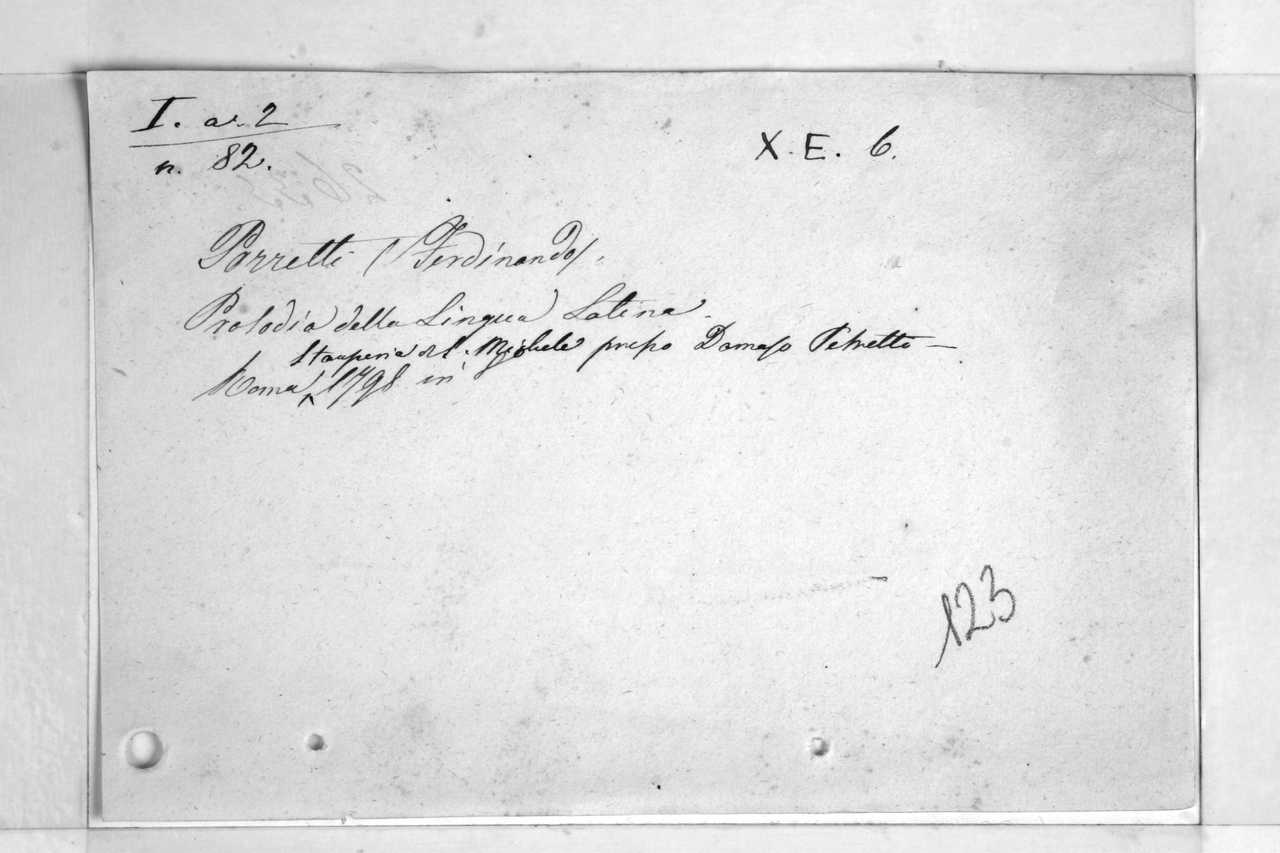 I. a. 2
n. 82.
X. E. 6.
Porretti (Ferdinando).
Prosodia della Lingua Latina.
Stamperia di S. Michele presso Damaso Petretti —
Roma, 1798 in
123